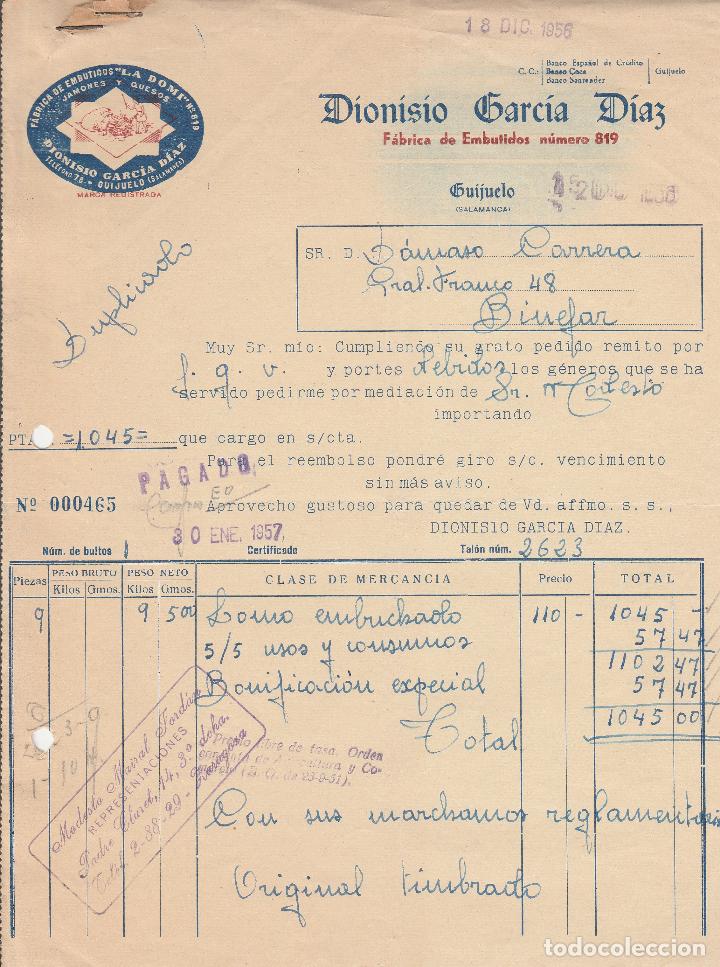 18 DIC. 1956
C. C.: Banco Español de Crédito
Banco Coca
Banco Santander
Guijuelo
FÁBRICA DE EMBUTIDOS "LA DOMI" Nº 819
JAMONES Y QUESOS
DIONISIO GARCÍA DÍAZ
TELÉFONO 78 - GUIJUELO (SALAMANCA)
MARCA REGISTRADA
Dionisio García Díaz
Fábrica de Embutidos número 819
Guijuelo
(SALAMANCA)
Duplicado
SR. D. Dámaso Carrera
Gral. Franco 48
Binefar
Muy Sr. mío: Cumpliendo su grato pedido remito por
f. g. v. y portes debidos los géneros que se ha
servido pedirme por mediación de Sr. Modesto
importando
PTAS. =1.045= que cargo en s/cta.
Para el reembolso pondré giro s/c. vencimiento
sin más aviso.
PAGADO
Nº 000465
Aprovecho gustoso para quedar de Vd. affmo. s. s.,
DIONISIO GARCIA DIAZ.
30 ENE. 1957
Núm. de bultos 1 Certificado Talón núm. 2623
Piezas PESO BRUTO PESO NETO CLASE DE MERCANCIA Precio TOTAL
Kilos Gmos. Kilos Gmos.
9 9 500 Lomo embuchado 110 - 1045 -
5/5 usos y consumos 57 47
1102 47
Bonificación especial 57 47
Total 1045 00
Modesto Mairal Jordán
REPRESENTACIONES
Padre Claret, 14, 3º dcha.
Teléf. 2-88-29 - Zaragoza
Precio libre de tasa, Orden
conjunta de Agricultura y Co-
mercio (B. O. de 23-9-51).
Con sus marchamos reglamentarios
Original timbrado
todocoleccion